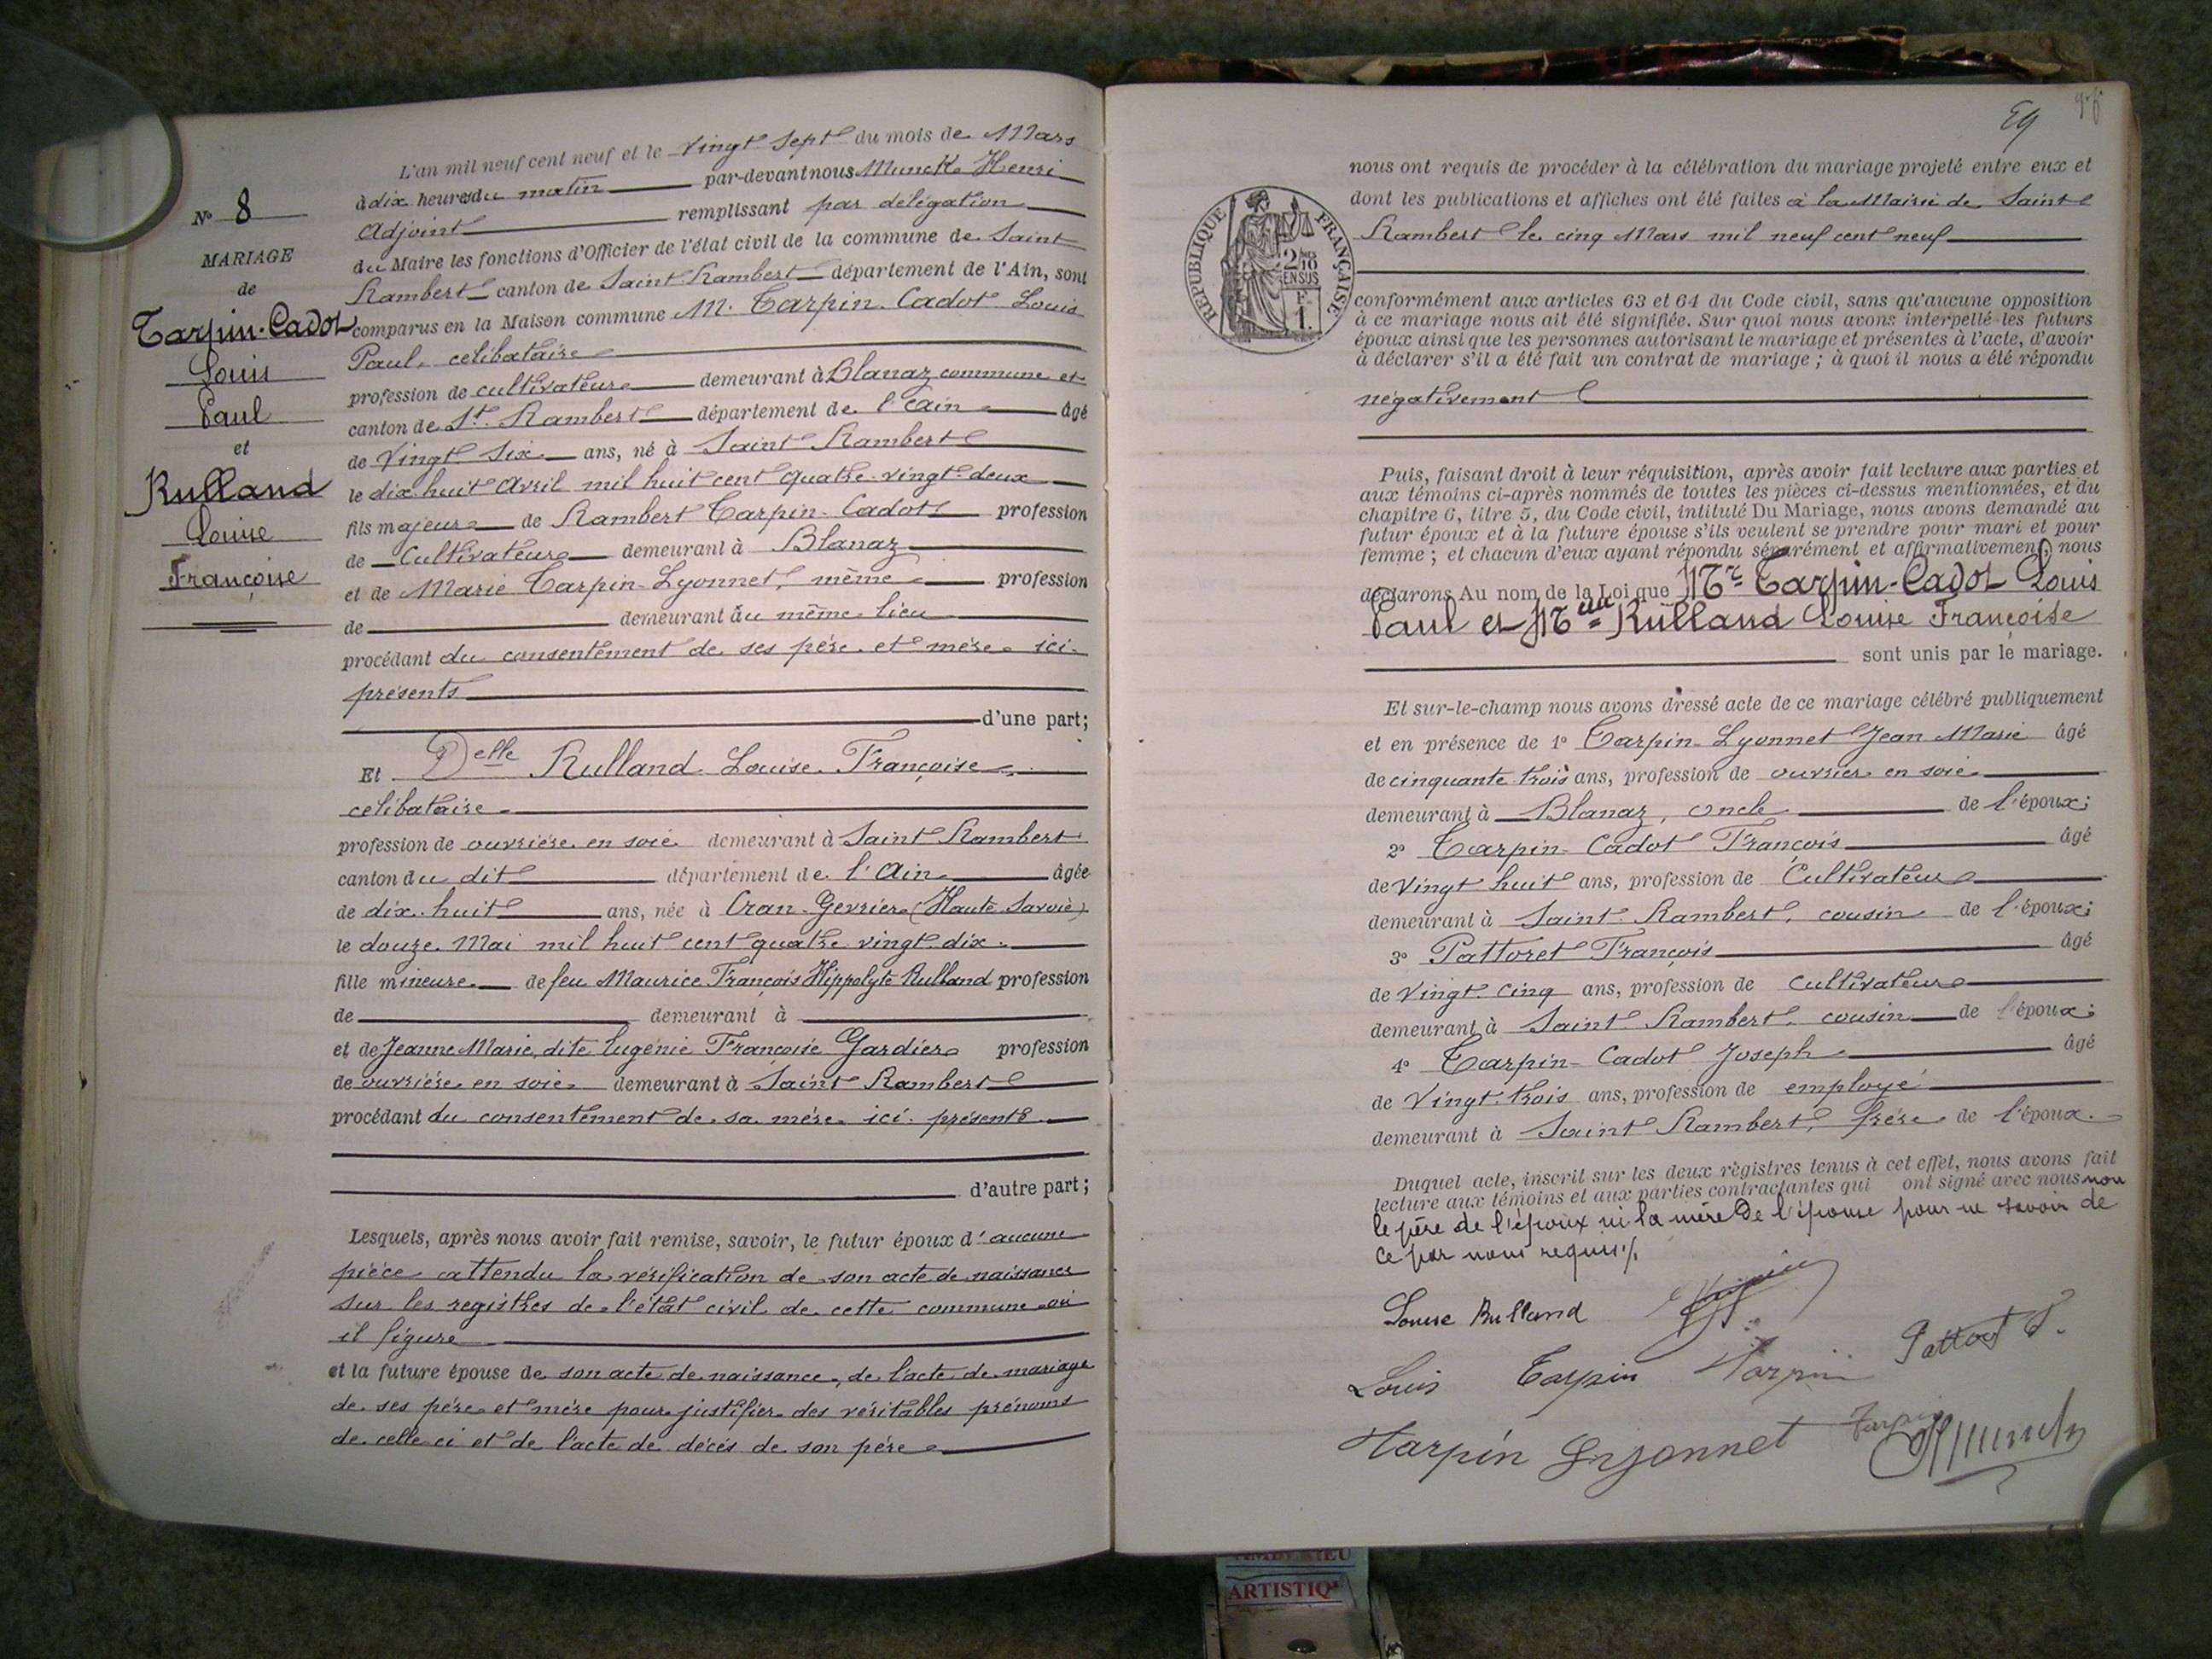 N° 8
MARIAGE
de
Tarpin-Cadot
Louis
Paul
et
Rulland
Louise
Françoise
L'an mil neuf cent neuf et le vingt sept du mois de Mars
à dix heures du matin par-devant nous Munck Henri
Adjoint remplissant par délégation
du Maire les fonctions d'Officier de l'état civil de la commune de Saint
Rambert canton de Saint Rambert département de l'Ain, sont
comparus en la Maison commune M. Tarpin-Cadot Louis
Paul, célibataire
profession de cultivateur demeurant à Blanaz commune et
canton de St. Rambert département de l'Ain âgé
de Vingt Six ans, né à Saint Rambert
le dix-huit Avril mil huit cent quatre-vingt-deux
fils majeur de Rambert Tarpin-Cadot profession
de Cultivateur demeurant à Blanaz
et de Marie Tarpin-Lyonnet, même profession
de demeurant au même lieu
procédant du consentement de ses père et mère ici
présents
d'une part;
Et Delle Rulland Louise Françoise
célibataire
profession de ouvrière en soie demeurant à Saint Rambert
canton du dit département de l'Ain âgée
de dix-huit ans, née à Cran-Gevrier (Haute Savoie)
le douze Mai mil huit cent quatre vingt dix
fille mineure de feu Maurice François Hippolyte Rulland profession
de demeurant à
et de Jeanne Marie, dite Eugénie Françoise Gardier profession
de ouvrière en soie demeurant à Saint Rambert
procédant du consentement de sa mère ici présente
d'autre part;
Lesquels, après nous avoir fait remise, savoir, le futur époux d'aucune
pièce attendu la vérification de son acte de naissance
sur les registres de l'état civil de cette commune où
il figure
et la future épouse de son acte de naissance, de l'acte de mariage
de ses père et mère pour justifier des véritables prénoms
de celle-ci et de l'acte de décès de son père
59
nous ont requis de procéder à la célébration du mariage projeté entre eux et
dont les publications et affiches ont été faites à la Mairie de Saint
Rambert le cinq Mars mil neuf cent neuf
RÉPUBLIQUE FRANÇAISE
2/10
EN SUS
1 F.
conformément aux articles 63 et 64 du Code civil, sans qu'aucune opposition
à ce mariage nous ait été signifiée. Sur quoi nous avons interpellé les futurs
époux ainsi que les personnes autorisant le mariage et présentes à l'acte, d'avoir
à déclarer s'il a été fait un contrat de mariage ; à quoi il nous a été répondu
négativement
Puis, faisant droit à leur réquisition, après avoir fait lecture aux parties et
aux témoins ci-après nommés de toutes les pièces ci-dessus mentionnées, et du
chapitre 6, titre 5, du Code civil, intitulé Du Mariage, nous avons demandé au
futur époux et à la future épouse s'ils veulent se prendre pour mari et pour
femme ; et chacun d'eux ayant répondu séparément et affirmativement, nous
déclarons Au nom de la Loi que Mr Tarpin-Cadot Louis
Paul et Melle Rulland Louise Françoise
sont unis par le mariage.
Et sur-le-champ nous avons dressé acte de ce mariage célébré publiquement
et en présence de 1° Tarpin-Lyonnet Jean Marie âgé
de cinquante trois ans, profession de ouvrier en soie
demeurant à Blanaz, oncle de l'époux;
2° Tarpin-Cadot François âgé
de vingt huit ans, profession de Cultivateur
demeurant à Saint Rambert, cousin de l'époux;
3° Pattoret François âgé
de vingt cinq ans, profession de Cultivateur
demeurant à Saint Rambert, cousin de l'époux;
4° Tarpin-Cadot Joseph âgé
de Vingt-trois ans, profession de employé
demeurant à Saint Rambert, frère de l'époux.
Duquel acte, inscrit sur les deux registres tenus à cet effet, nous avons fait
lecture aux témoins et aux parties contractantes qui ont signé avec nous non
le père de l'époux ni la mère de l'épouse pour ne savoir de
ce par nous requis
Louise Rulland
Louis Tarpin Tarpin Pattoret F.
Tarpin Lyonnet Tarpin HMunck
ARTISTIQ